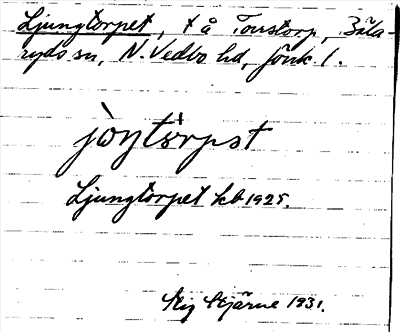 Ljungtorpet, t å Tonstorp, Bäla-
ryds sn, N. Vedbo hd, Jönk l.
jòŋtòrpət
Ljungtorpet kb 1925.
Stig Stjärne 1931.